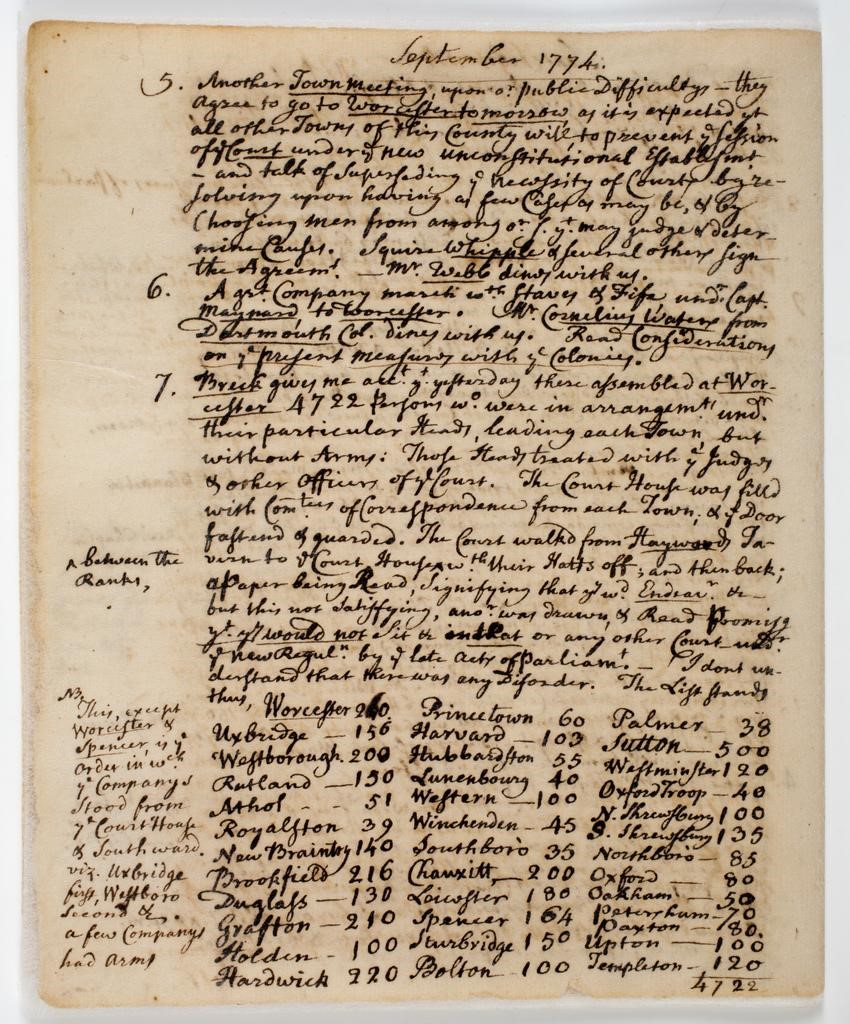 September 1774.
5. Another Town meeting, upon or public Difficultys – they
agree to go to Worcester tomorrow as it is expected yt
all other Towns of this County will, to prevent ye Session
of ye Court under ye new unconstitutional Establishmt
– and talk of Superseding ye necessity of Courts by re-
solving upon having as few Cases as may be, & by
Choosing men from among or S. yt may judge & deter-
mine Causes. Squire Whipple & several others sign
the Agreemt. — Mr. Webb dines with us.
6. A grt Company march wth Staves & Fife undr Capt.
Maynard, to Worcester. Mr Cornelius Waters from
Dartmouth Col. dines with us. Read Considerations
on ye present measures with ye Colonies.
7. Breck gives me acct yt yesterday there assembled at Wor-
cester 4722 Persons wo were in arrangemts undr
their particular Heads, leading each Town, but
without Arms: Those Heads treated with ye Judges
& other Officers of ye Court. The Court House was filld
with Comtees of Correspondence from each Town; & ye Door
fastend & guarded. The Court walkd from Haywards Ta-
vern to ye Court House ^ wth their Hatts off; and then back;
^ between the
Ranks,
a Paper being Read, Signifying that yy wd Endeavr &c
but this not Satisfying, anor was drawn, & Read Promisg
yt yy would not Sit &c in that or any other Court undr
ye new Reguln by ye late Acts of Parliamt. — I dont un-
derstand that there was any Disorder. The List stands
thus, Worcester 260 Princetown 60 Palmer — 38
Uxbridge — 156 Harvard — 103 Sutton — 500
Westborough. 200 Hubbardston 55 Westminster 120
Rutland — 150 Lunenbourg 40 Oxford Troop — 40
Athol - - 51 Western — 100 N. Shrewsbury 100
Royalston 39 Winchenden - 45 S. Shrewsbury 135
New Braintry 140 Southboro 35 Northboro — 85
Brookfield 216 Chauxitt — 200 Oxford — 80
Duglass — 130 Leicester 180 Oakham — 50
Grafton — 210 Spencer 164 Petersham — 70
Paxton — 80.
Holden - 100 Sturbridge 150 Upton — 100
Hardwick 220 Bolton — 100 Templeton — 120
4722
NB.
This, except
Worcester &
Spencer, is ye
Order in wch
ye Companys
Stood from
ye Court House
& Southward.
viz. Uxbridge
first, Westboro
Second &c.
a few Companys
had arms